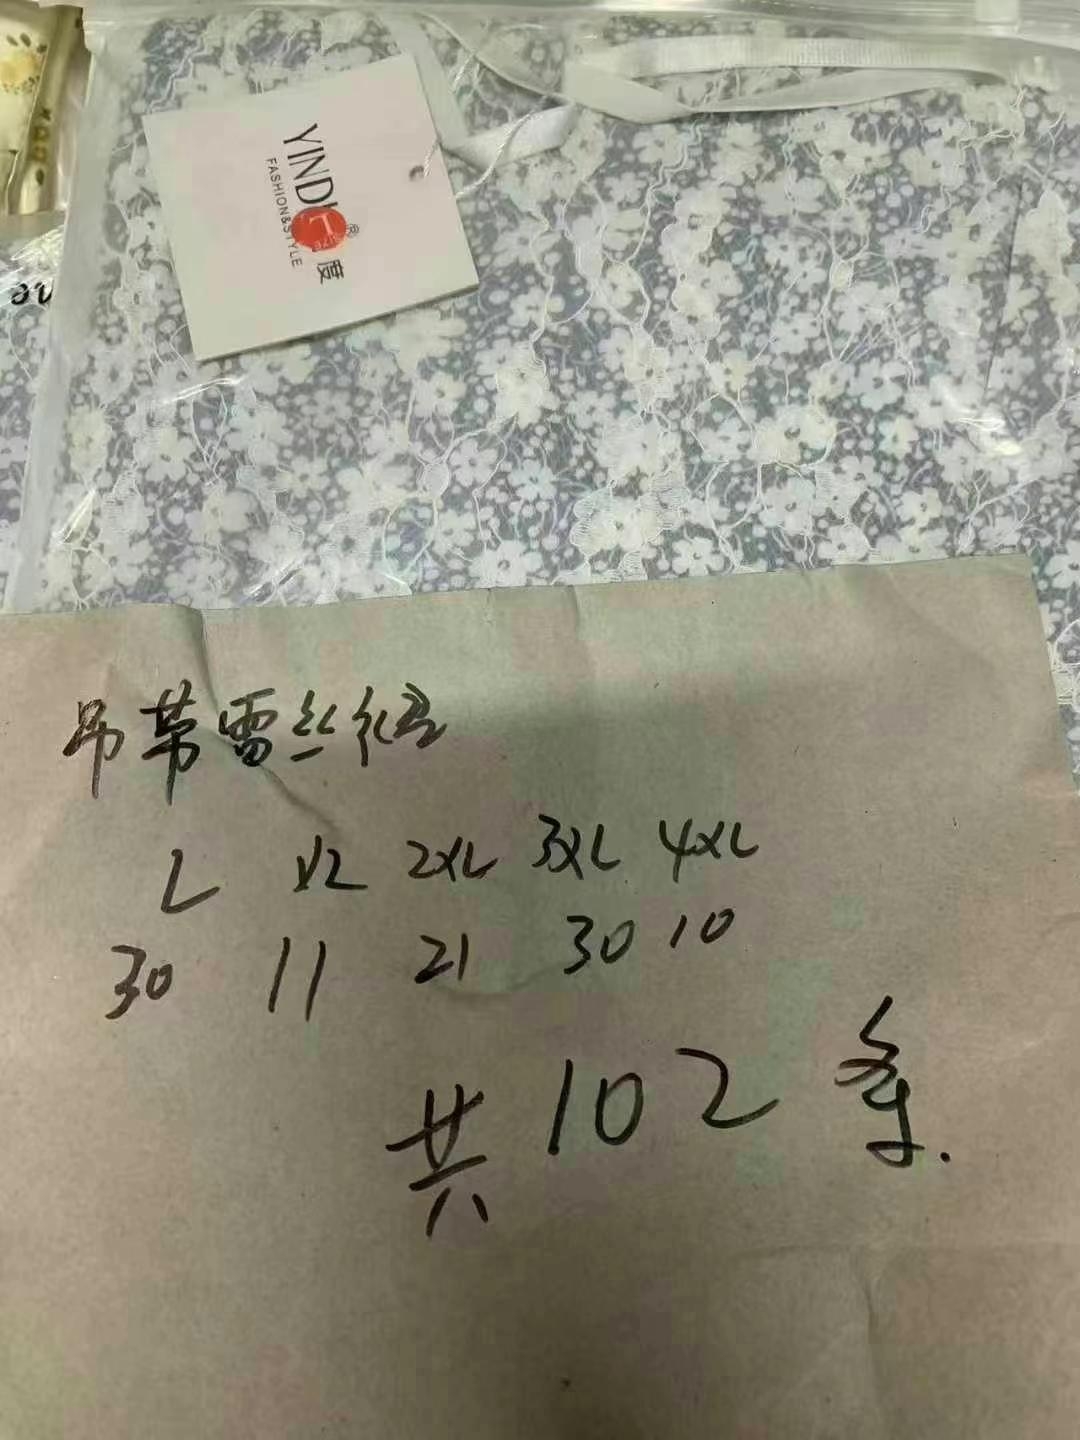 YINDU
FASHION&STYLE
L
SIZE
®
度
吊带蕾丝裙
L XL 2XL 3XL 4XL
30 11 21 30 10
共102条.